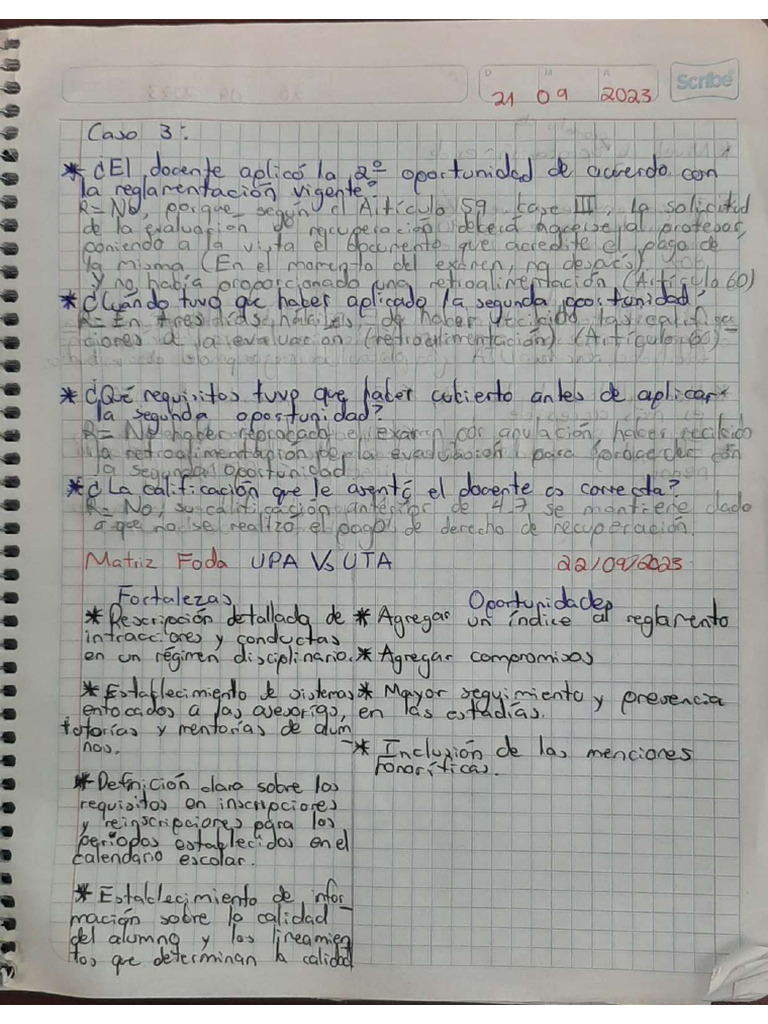 D M A
21 09 2023
Scribe
Caso 3:
* ¿El docente aplicó la 2º oportunidad de acuerdo con
la reglamentación vigente?
R= No, porque según el Artículo 59 fase III, la solicitud
de la evaluación de recuperación deberá hacerse al profesor,
poniendo a la vista el documento que acredite el pago de
la misma (En el momento del exámen, no después)
y no había proporcionado una retroalimentación (Artículo 60)
* ¿Cuándo tuvo que haber aplicado la segunda oportunidad?
R= En tres días hábiles, de haber recibido las califica-
ciones de la evaluación (retroalimentación) (Artículo 60)
* ¿Qué requisitos tuvo que haber cubierto antes de aplicar
la segunda oportunidad?
R= No haber reprobado el exámen por anulación, haber recibido
la retroalimentación de la evaluación para proceder con
la segunda oportunidad
* ¿La calificación que le asentó el docente es correcta?
R= No, su calificación anterior de 4.7 se mantiene dado
a que no se realizó el pago de derecho de recuperación.
Matriz Foda UPA Vs UTA 22/09/2023
Fortalezas Oportunidades
* Descripción detallada de * Agregar un índice al reglamento
infracciones y conductas
en un régimen disciplinario. * Agregar compromisos
* Establecimiento de sistemas * Mayor seguimiento y presencia
enfocados a las asesorías, en las estadías.
tutorías y mentorías de alum
nos. * Inclusión de las menciones
honoríficas.
* Definición clara sobre los
requisitos en inscripciones
y reinscripciones para los
periodos establecidos en el
calendario escolar.
* Establecimiento de infor-
mación sobre la calidad
del alumno y los lineamien
tos que determinan la calidad